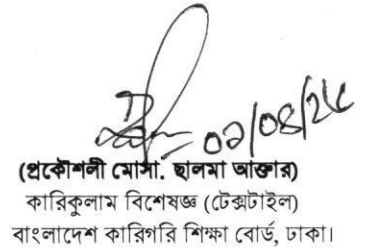 ০৯/০৪/২৫
(প্রকৌশলী মোসা. ছালমা আক্তার)
কারিকুলাম বিশেষজ্ঞ (টেক্সটাইল)
বাংলাদেশ কারিগরি শিক্ষা বোর্ড, ঢাকা।